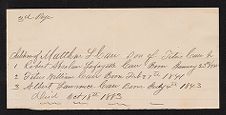 2d Page
Children of Matthew L Carr Son of Titus Carr
1 Robert Lafayette Carr Born January 23rd
2 Titus William Carr Born Feb 27th 1841
3 Albert Lawrence Carr Born July 4th 1843
Died Oct 18th 1843